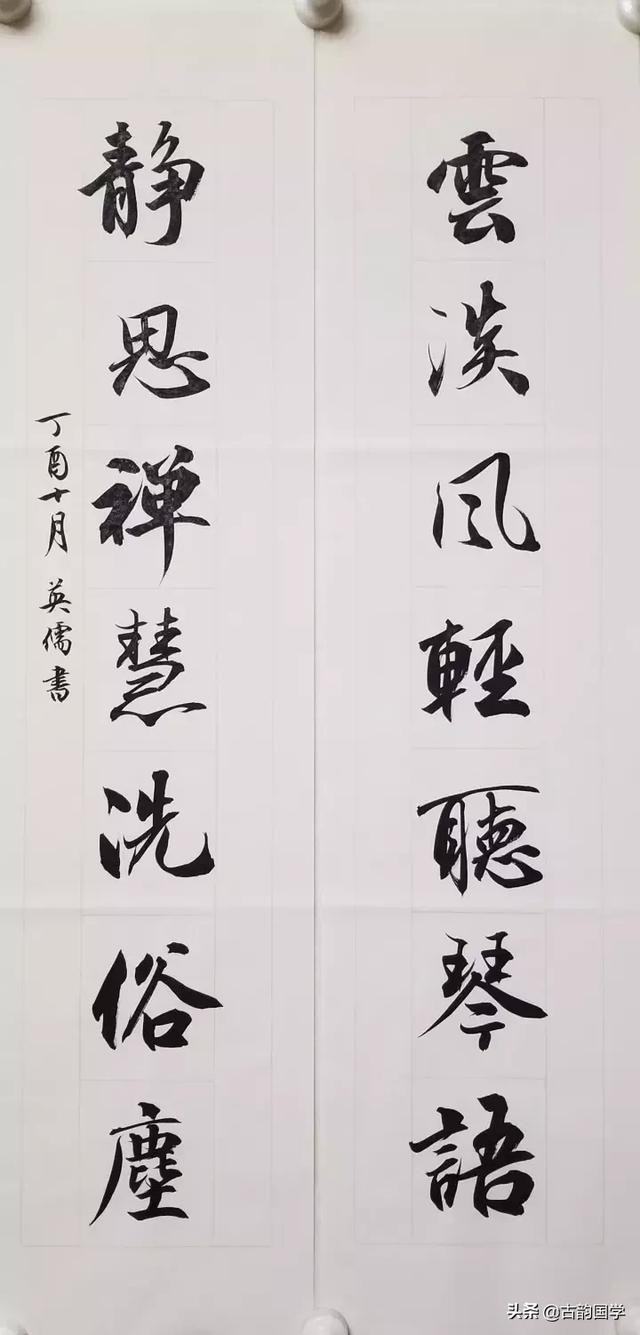 雲淡风輕聽琴語
静思禅慧洗俗塵
丁酉十月 英儒書
头条 @古韵国学